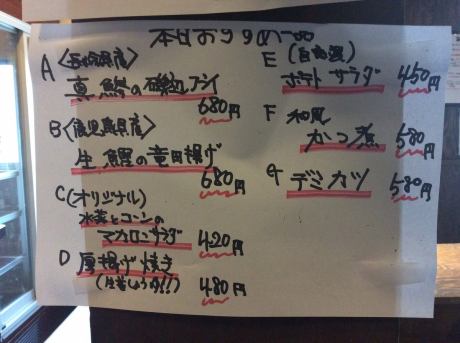 本日おすすめ一品
A <長崎県産>
真鯵の磯辺アゲ
680円
B <鹿児島県産>
生鰹の竜田揚げ
680円
C (オリジナル)
水菜とコーンの
マカロニサラダ 420円
D 厚揚げ焼き
(生姜しょうゆ!!) 480円
E (自家製)
ポテトサラダ 450円
F 和風
かつ煮 580円
G デミカツ 580円